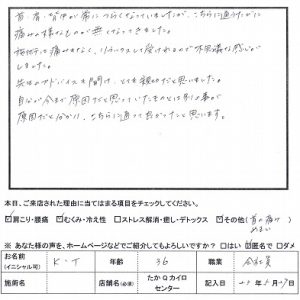 首・肩・背中が常につらくなっていましたが、こちらに通うたびに
痛みの様なものが無くなってきました。
施術も痛みもなく、リラックスして受けれるので不思議な感じが
しました。
先生のアドバイスも聞け、とても親切だと思いました。
自分が今まで原因だと思っていたものとは別の事が
原因だと分かり、こちらに通って良かったと思います。
本日、ご来店された理由に当てはまる項目をチェックしてください。
☑肩こり・腰痛 ☑むくみ・冷え性 □ストレス解消・癒し・デトックス ☑その他(首の痛み
めまい)
※ あなた様の声を、ホームページなどでご紹介してもよろしいですか? □はい ☑匿名で □ダメ
お名前
(イニシャル可) K・T 年齢 36 職業 会社員
施術名 店舗名(必須) たかQカイロ
センター 記入日 年 月 日